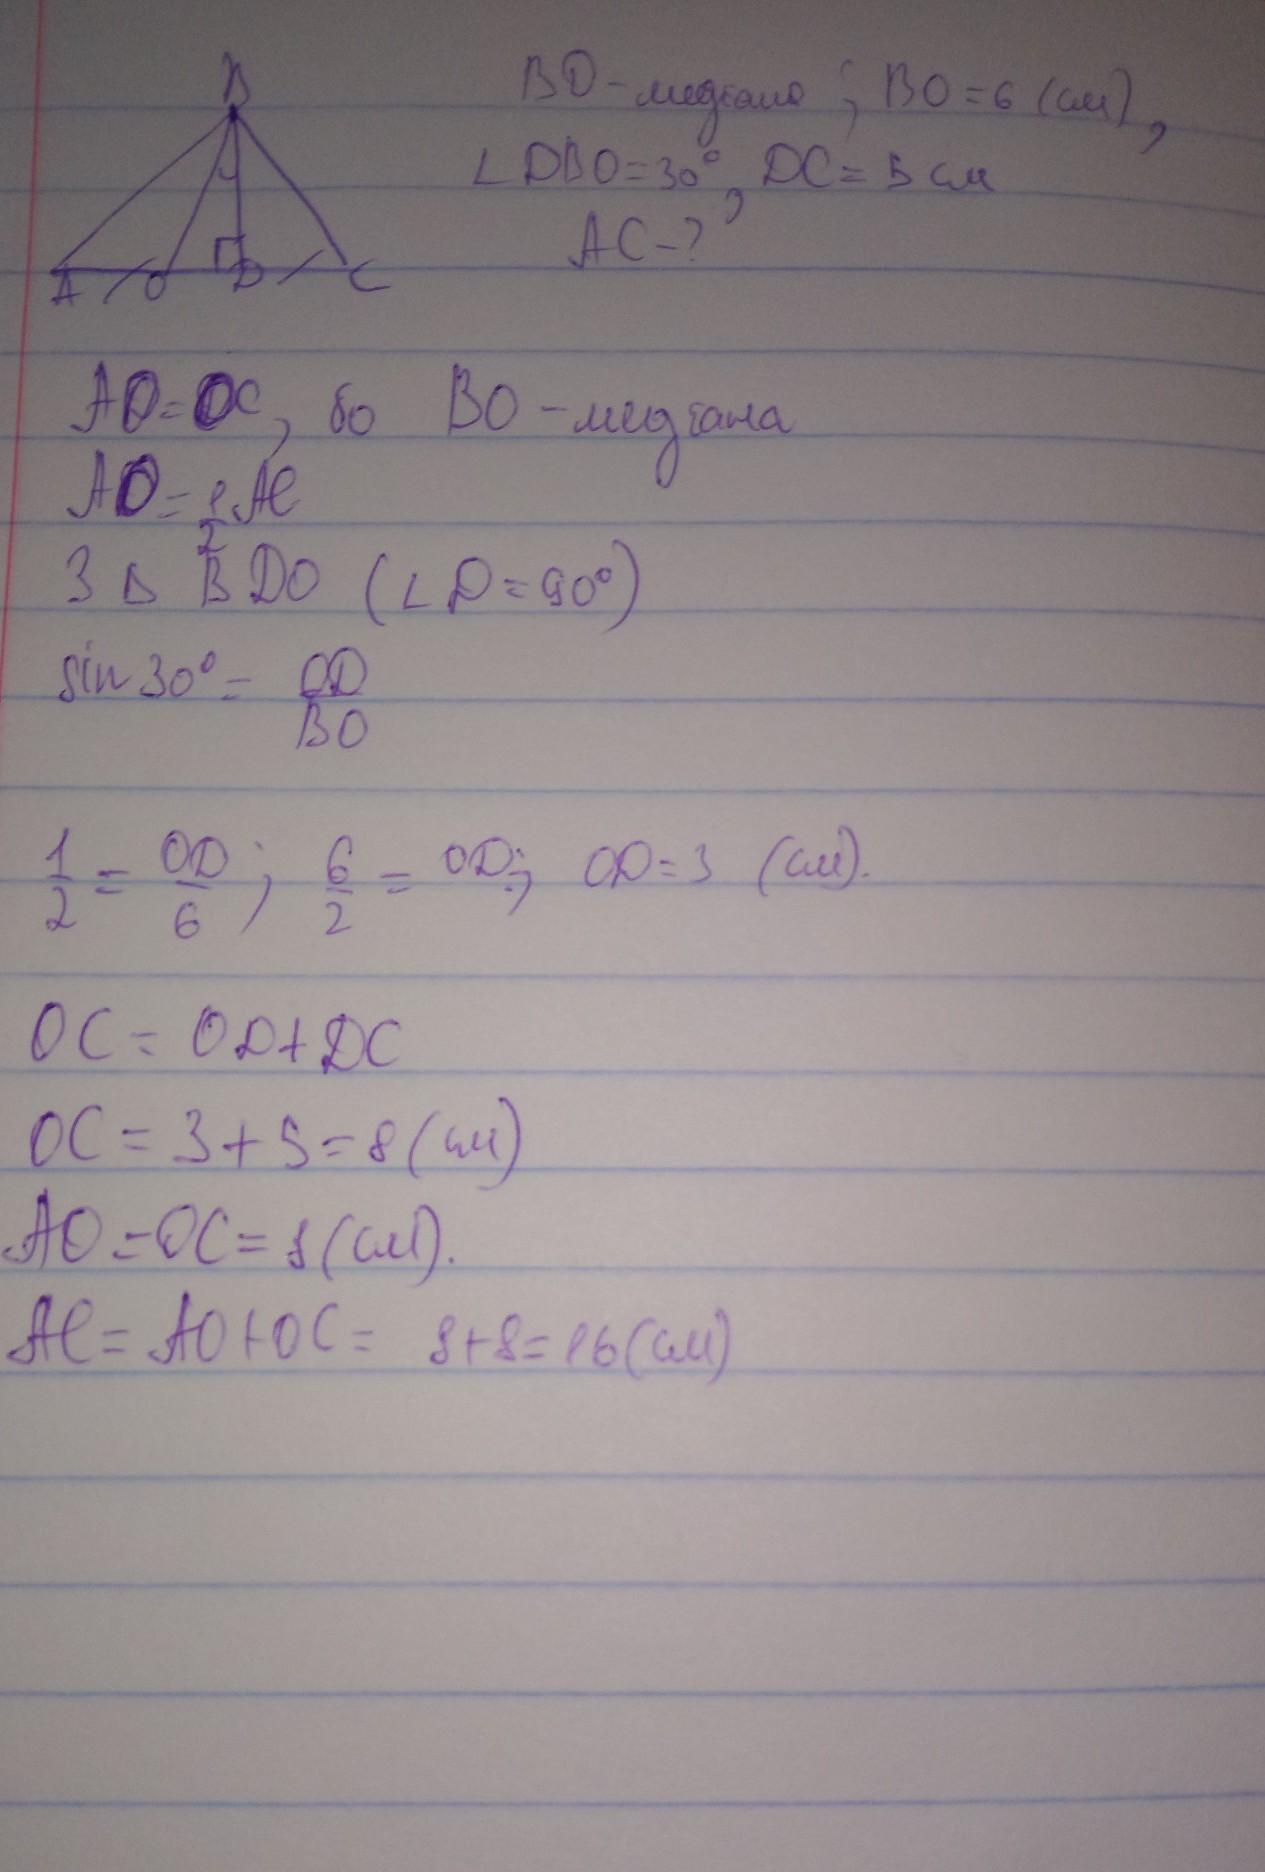 B
A O D C
BO - медіана; BO = 6 (см),
∠DBO = 30°, DC = 5 см
AC - ?
AO = OC, бо BO - медіана
AO = 1/2 AC
З Δ BDO (∠D = 90°)
sin 30° = OD/BO
1/2 = OD/6; 6/2 = OD; OD = 3 (см).
OC = OD + DC
OC = 3 + 5 = 8 (см)
AO = OC = 8 (см).
AC = AO + OC = 8 + 8 = 16 (см)